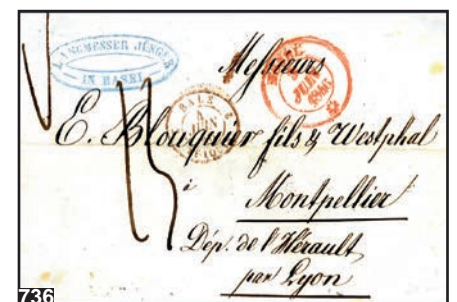 LANGMESSER JÜNGER
IN BASEL
Messieurs
E. Blouquier fils & Westphal
à
Montpellier
Dép. de l'Hérault
par Lyon
BALE
JUIN
736